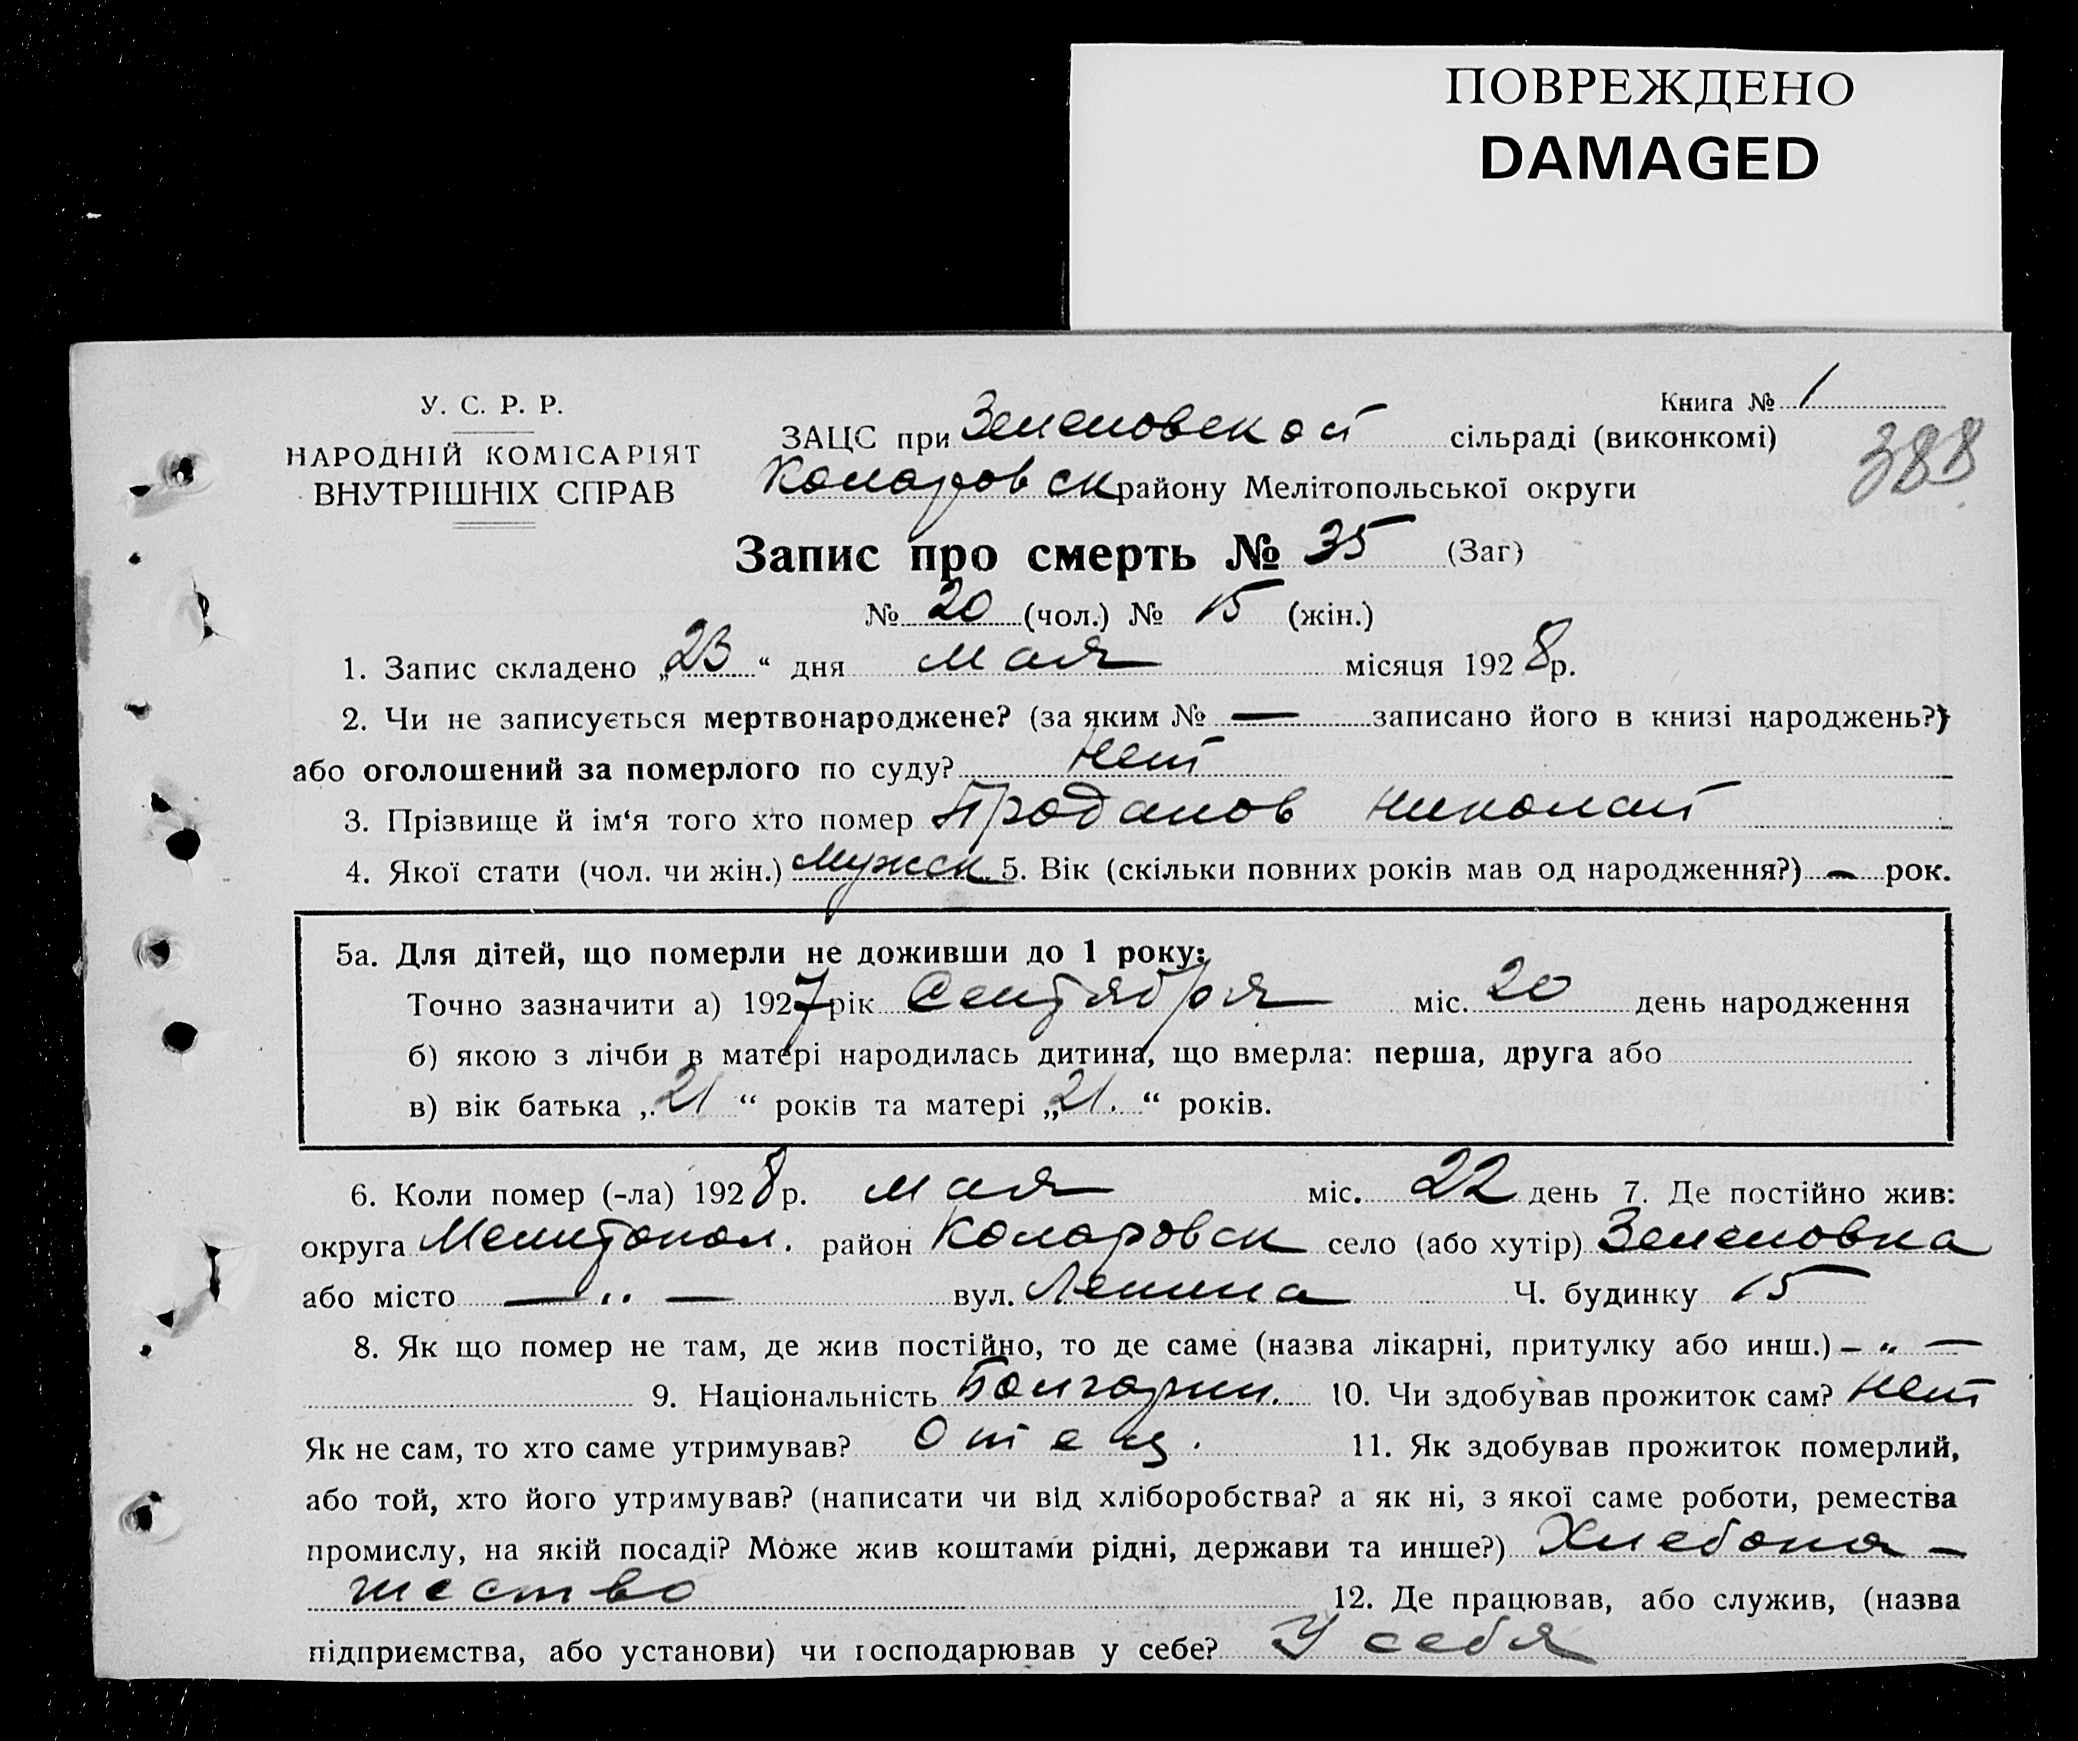 ПОВРЕЖДЕНО
DAMAGED
Книга № 1
388
У. С. Р. Р.
НАРОДНІЙ КОМІСАРІЯТ
ВНУТРІШНІХ СПРАВ
ЗАЦС при Зеленовской сільраді (виконкомі)
Коларовск району Мелітопольської округи
Запис про смерть № 35 (Заг)
№ 20 (чол.) № 15 (жін.)
1. Запис складено „23“ дня мая місяця 1928 р.
2. Чи не записується мертвонароджене? (за яким № — записано його в книзі народжень?)
або оголошений за померлого по суду? нет
3. Прізвище й ім‘я того хто помер Проданов Николай
4. Якої стати (чол. чи жін.) Мужск. 5. Вік (скільки повних років мав од народження?) — рок.
5а. Для дітей, що померли не доживши до 1 року:
Точно зазначити а) 1927 рік Сентября міс. 20 день народження
б) якою з лічби в матері народилась дитина, що вмерла: перша, друга або
в) вік батька „21“ років та матері „21.“ років.
6. Коли помер (-ла) 1928 р. мая міс. 22 день 7. Де постійно жив:
округа Мелитопол. район Коларовск село (або хутір) Зеленовка
або місто — „ — вул. Ленина Ч. будинку 15
8. Як що помер не там, де жив постійно, то де саме (назва лікарні, притулку або инш.) — „ —
9. Національність Болгарин. 10. Чи здобував прожиток сам? нет
Як не сам, то хто саме утримував? Отец. 11. Як здобував прожиток померлий,
або той, хто його утримував? (написати чи від хліборобства? а як ні, з якої саме роботи, ремества
промислу, на якій посаді? Може жив коштами рідні, держави та инше?) Хлебопа-
шество 12. Де працював, або служив, (назва
підприємства, або установи) чи господарював у себе? У себя